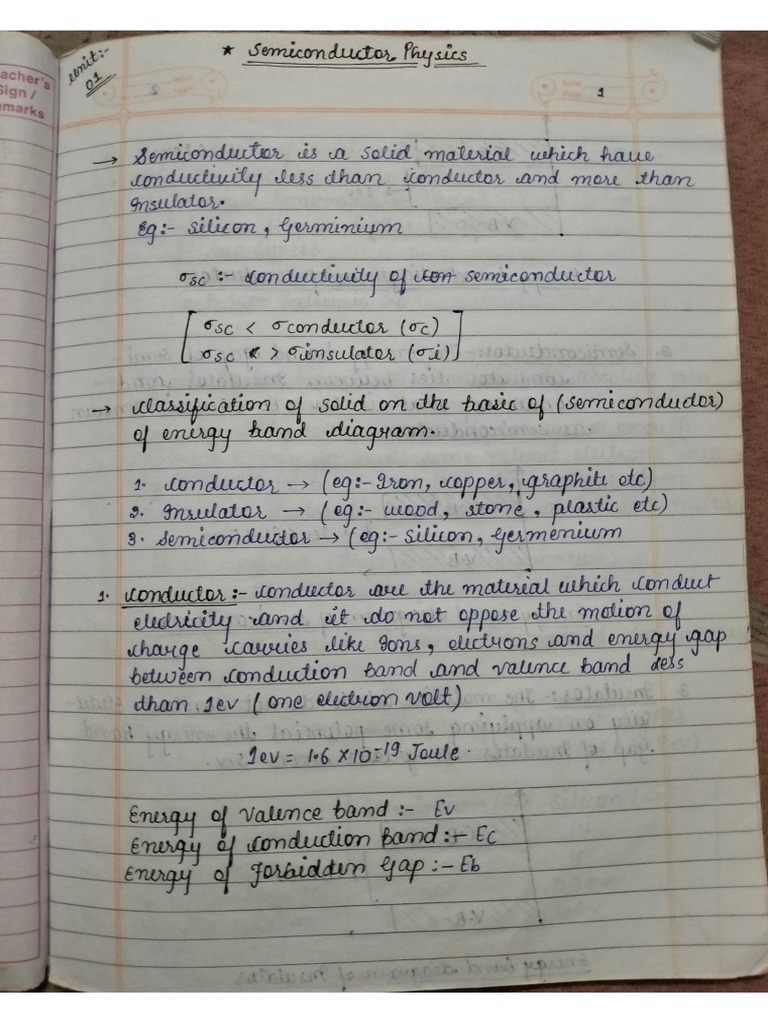 acher's
Sign /
emarks
Unit:-
01
* Semiconductor Physics
1
→ Semiconductor is a solid material which have
conductivity less than conductor and more than
Insulator.
Eg:- silicon, Germinium
σsc :- conductivity of con semiconductor
σsc < σconductor (σc)
σsc > σinsulator (σi)
→ classification of solid on the basic of (semiconductor)
of energy band diagram.
1. conductor → (eg:- Iron, copper, graphite etc)
2. Insulator → (eg:- wood, stone, plastic etc)
3. Semiconductor → (eg:- silicon, Germenium
1. conductor:- conductor are the material which conduct
electricity and it do not oppose the motion of
charge carries like Ions, electrons and energy gap
between conduction band and valence band less
than 1ev (one electron volt)
1ev = 1.6 × 10-19 Joule.
Energy of valence band :- Ev
Energy of conduction Band :- Ec
Energy of Forbidden Gap :- Eb